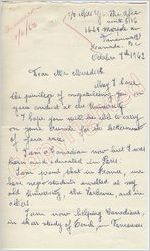 October 7th 1962
Dear Mr. Meredith
May I have
the privilege of congratulating you on
your conduct at the University
I hope you will be able to carry
on your crusade for the betterment
of your race.
I am a Canadian now but I was
born and educated in Paris.
I am proud that in France, we
have negro students enrolled at my
old University, the Sorbonne, and in
others
I am now helping Canadians,
in their study of French